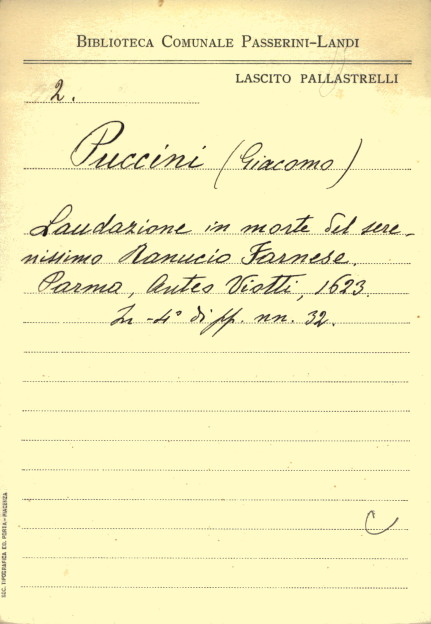 BIBLIOTECA COMUNALE PASSERINI-LANDI
LASCITO PALLASTRELLI
2.
Puccini (Giacomo)
Laudazione in morte del sere-
nissimo Ranucio Farnese.
Parma, Anteo Viotti, 1623.
In -4° di pp. nn. 32.
C
SOC. TIPOGRAFICA ED. PORTA - PIACENZA